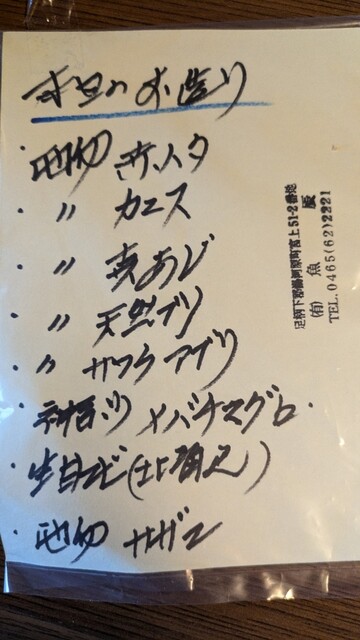 本日のお造り
・地物 赤ハタ
・〃 カマス
・〃 真あじ
・〃 天然ブリ
・〃 アブリ
・神奈川 メバチマグロ
・生目エビ
・地物 サザエ
足柄下郡湯河原町宮上51-2番地
(有) 魚
TEL. 0465(62)2221